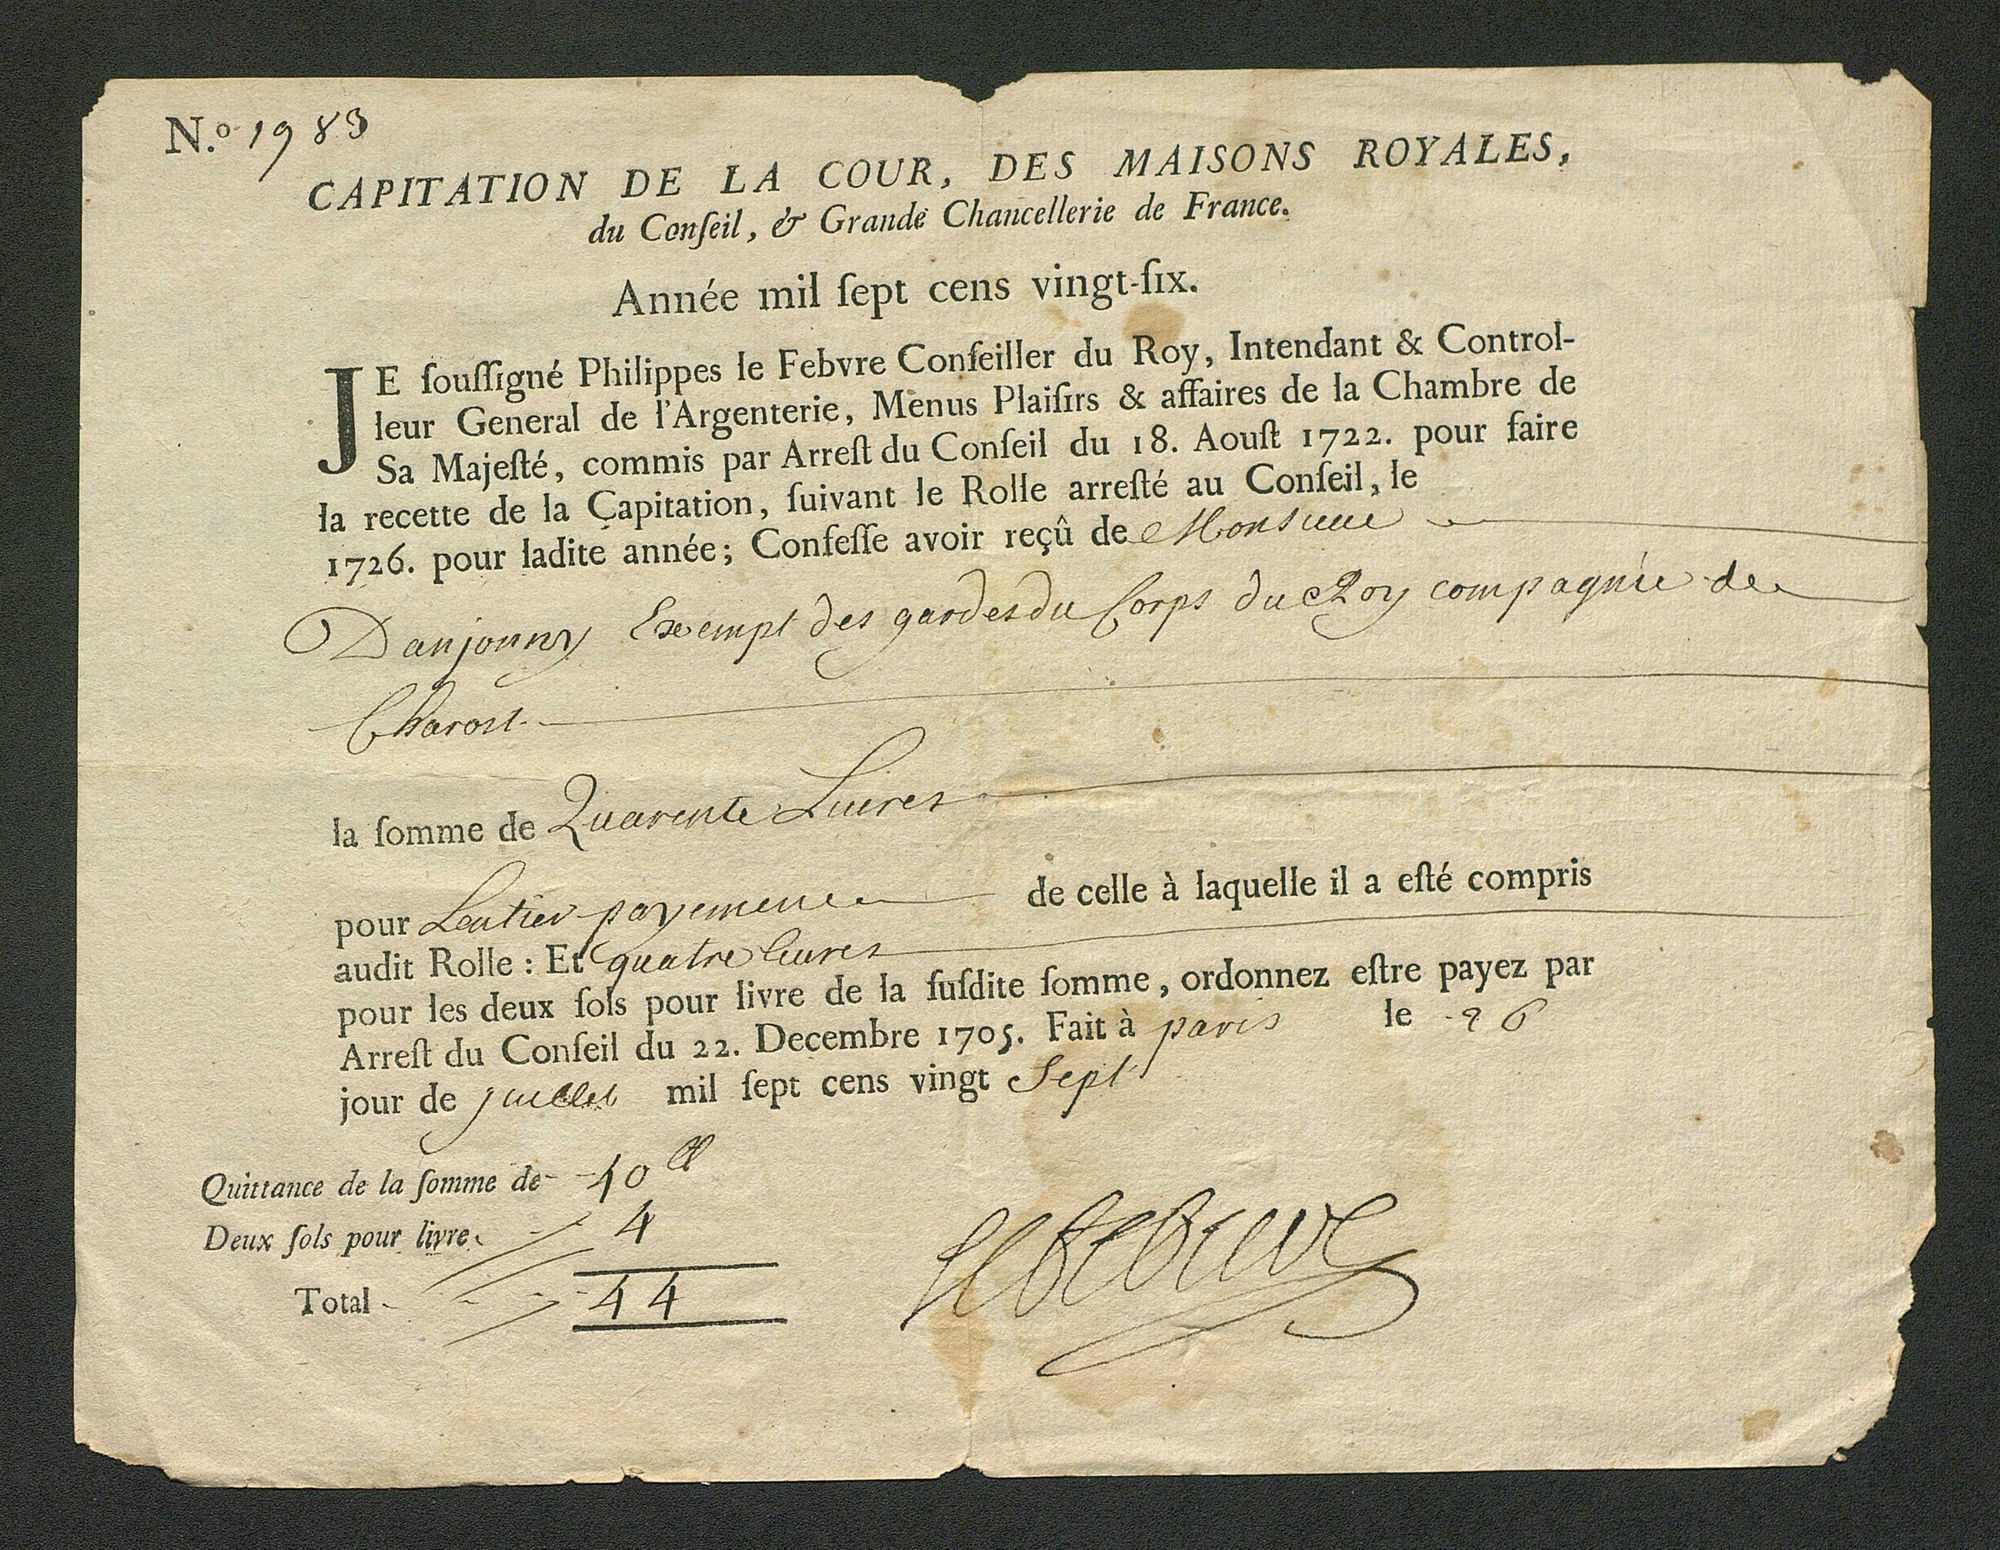 N.o 1983
CAPITATION DE LA COUR, DES MAISONS ROYALES,
du Conſeil, & Grande Chancellerie de France.
Année mil ſept cens vingt-ſix.
JE ſouſſigné Philippes le Febvre Conſeiller du Roy, Intendant & Control-
leur General de l'Argenterie, Menus Plaiſirs & affaires de la Chambre de
Sa Majeſté, commis par Arreſt du Conſeil du 18. Aouſt 1722. pour faire
la recette de la Capitation, ſuivant le Rolle arreſté au Conſeil, le
1726. pour ladite année; Confeſſe avoir reçû de Monsieur
Danjonny Exempt des gardes du Corps du Roy compagnie de
Charost
la ſomme de Quarente Liures
pour Lentier payement de celle à laquelle il a eſté compris
audit Rolle : Et quatre liures
pour les deux ſols pour livre de la ſuſdite ſomme, ordonnez eſtre payez par
Arreſt du Conſeil du 22. Decembre 1705. Fait à paris le 26
jour de juillet mil ſept cens vingt Sept
Quittance de la ſomme de 40ll
Deux ſols pour livre. 4
Total 44
lefebure